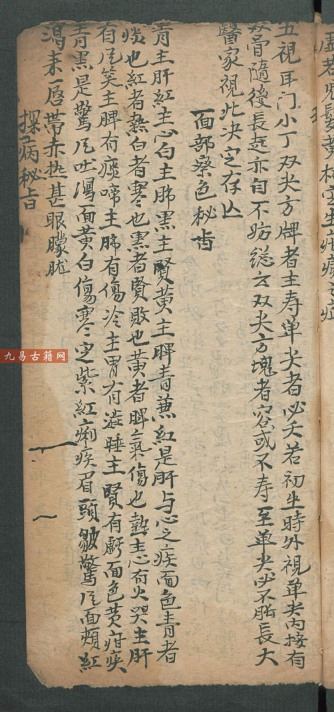 五視耳门小丁双尖方牌者主寿单尖者必夭若初生時外視单尖内接有
隨後長延亦自不妨總之双尖方塊者容或不寿至单尖必不能長大
醫家視此决定存亡
面部察色秘旨
青主肝紅主心白主肺黑主賢黄主脾青兼紅是肝与心之疾面色青者
也紅者熱白者寒也黑者賢敗也黄者脾氣傷也熱主心有火哭主肝
有風笑主脾有痰啼主肺有傷冷主胃有滯睡主賢有虧面色黄疳疾
青黑是驚風吐瀉面黄白傷寒定紫紅痢疾眉頭皺驚風面頰紅
渴来唇帶赤热甚眼矇眬
探病秘旨
九易古籍网